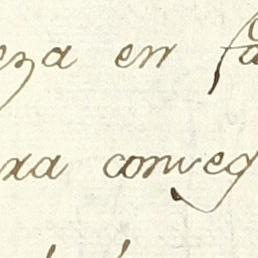 eza en fa
xa conveg